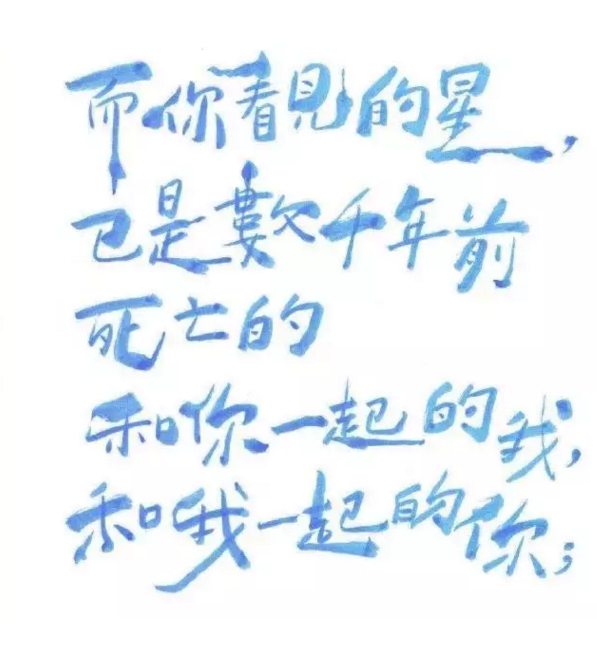 而你看見的星，
已是數千年前
死亡的
和你一起的我，
和我一起的你；